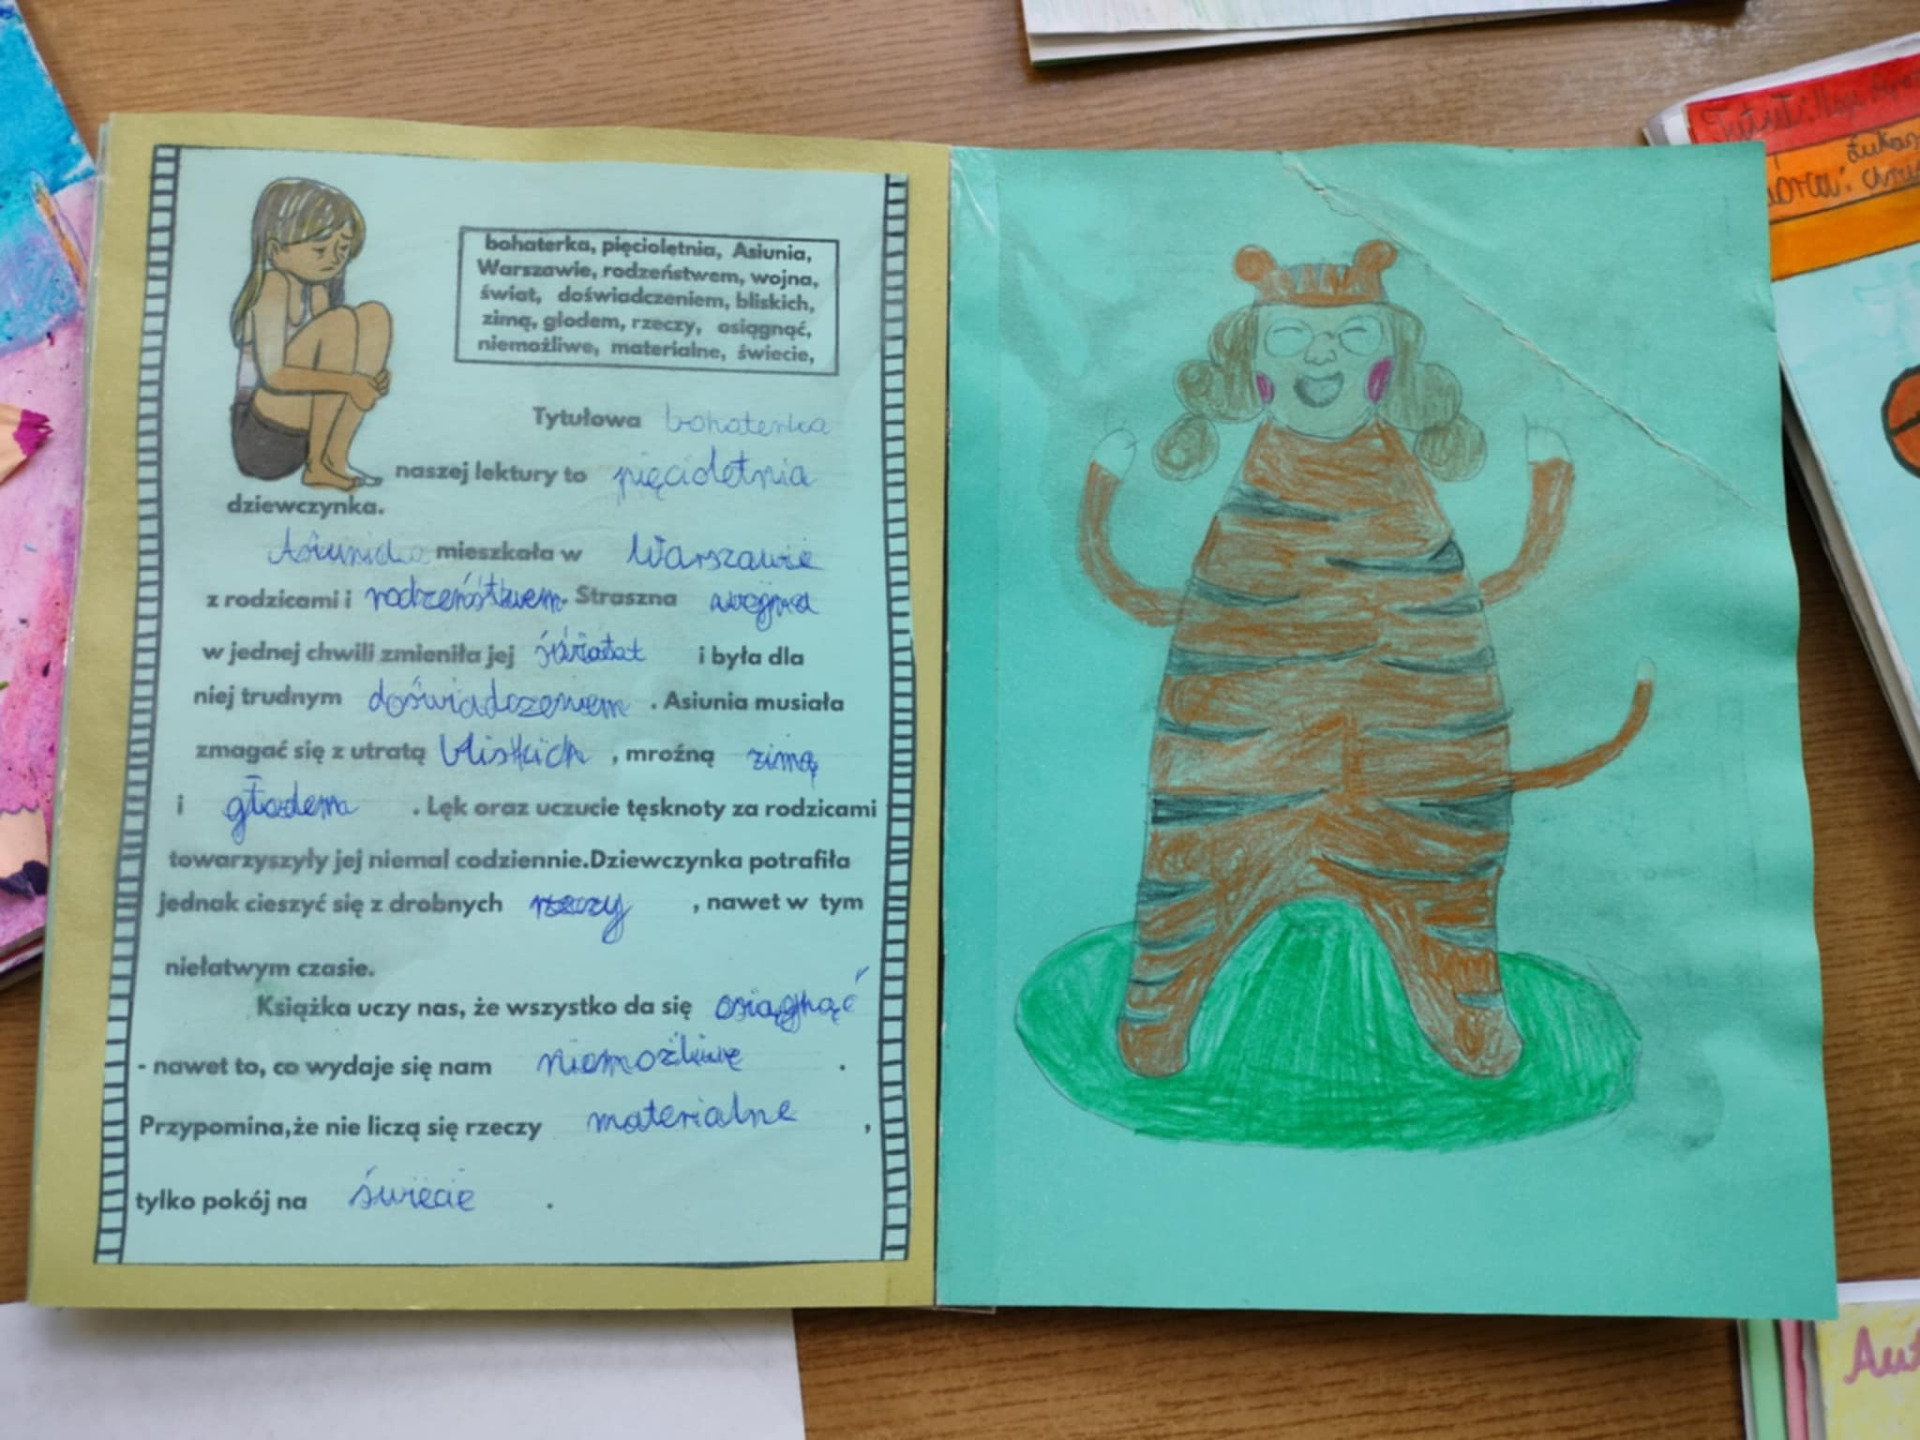 bohaterka, pięcioletnia, Asiunia,
Warszawie, rodzeństwem, wojna,
świat, doświadczeniem, bliskich,
zimą, głodem, rzeczy, osiągnąć,
niemożliwe, materialne, świecie,
Tytułowa bohaterka
naszej lektury to pięcioletnia
dziewczynka.
mieszkała w Warszawie
z rodzicami i rodzeństwem. Straszna wojna
w jednej chwili zmieniła jej i była dla
niej trudnym doświadczeniem . Asiunia musiała
zmagać się z utratą bliskich , mroźną zimą
i głodem . Lęk oraz uczucie tęsknoty za rodzicami
towarzyszyły jej niemal codziennie.Dziewczynka potrafiła
jednak cieszyć się z drobnych rzeczy , nawet w tym
niełatwym czasie.
Książka uczy nas, że wszystko da się osiągnąć
- nawet to, co wydaje się nam niemożliwe .
Przypomina,że nie liczą się rzeczy materialne ,
tylko pokój na świecie .
Tytuł:
Łukasz
Aut